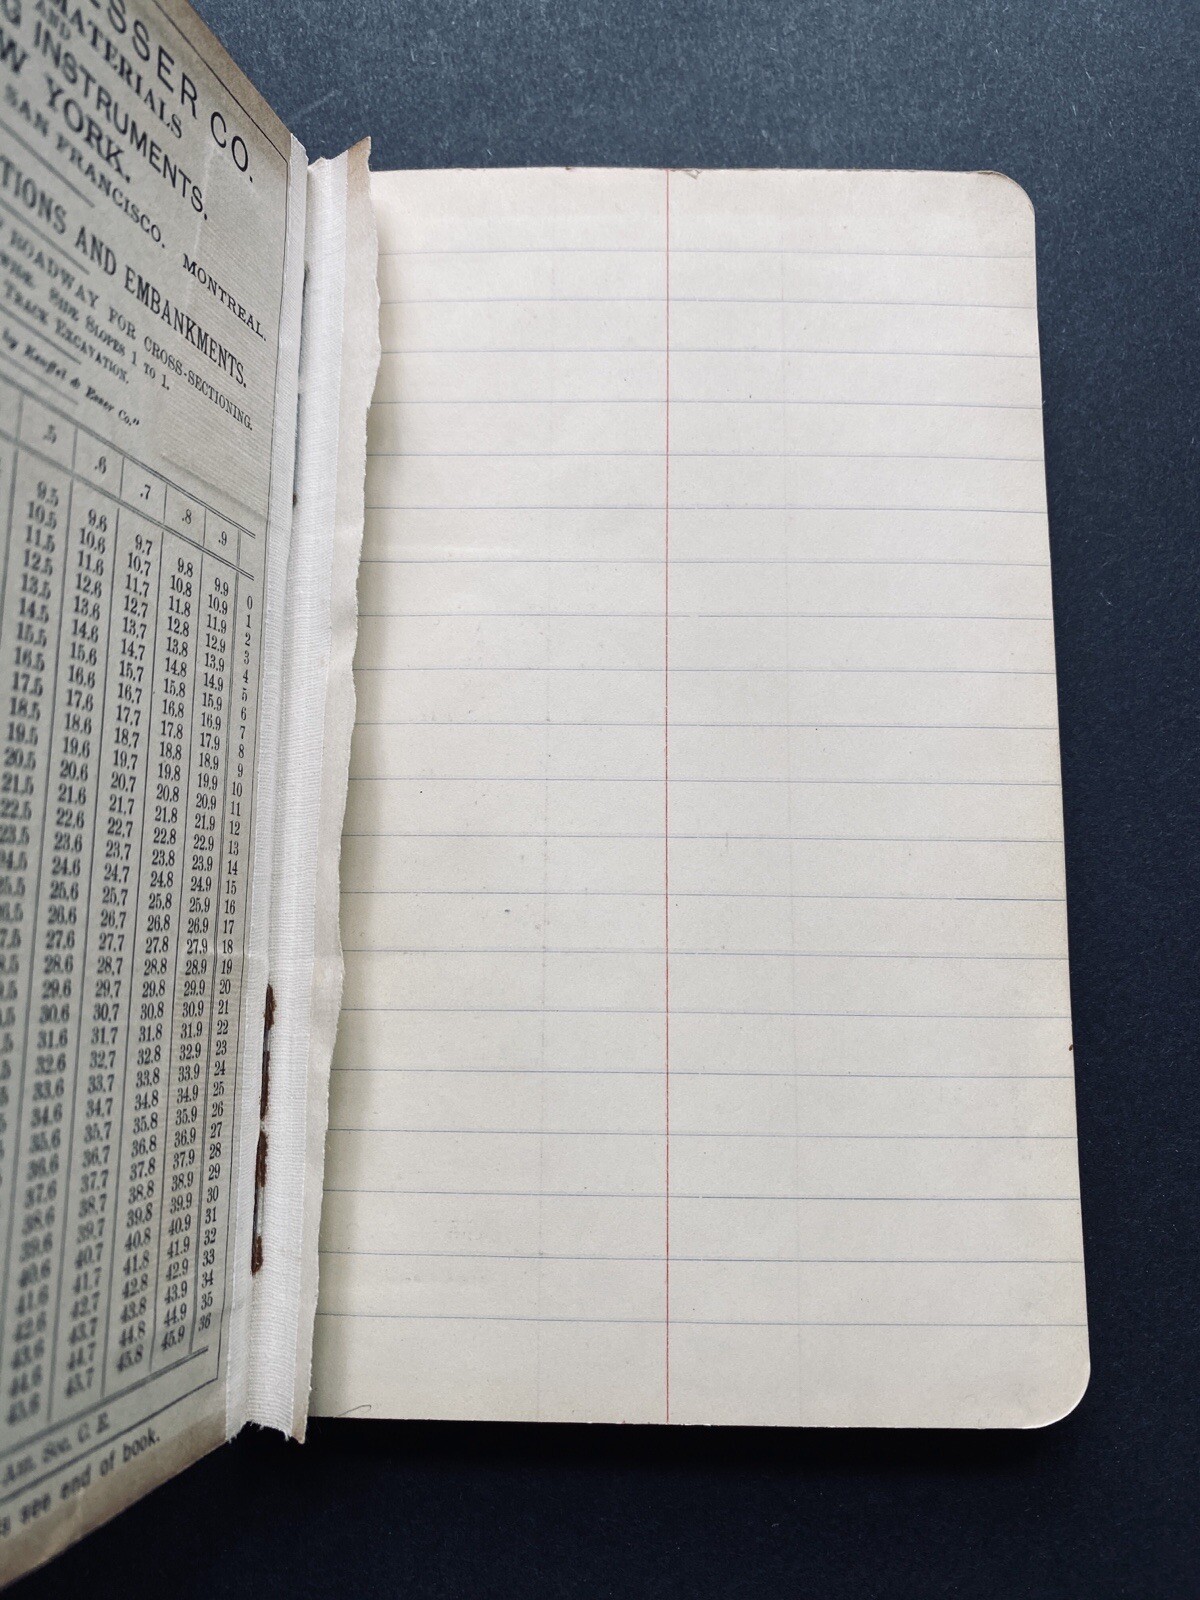 SSER CO.
MATERIALS
AND
G INSTRUMENTS.
W YORK.
SAN FRANCISCO. MONTREAL.
TIONS AND EMBANKMENTS.
ROADWAY FOR CROSS-SECTIONING.
WIDE. SIDE SLOPES 1 TO 1.
TRACK EXCAVATION.
by Keuffel & Esser Co."
.5 .6 .7 .8 .9
9.5 9.6 9.7 9.8 9.9 0
10.5 10.6 10.7 10.8 10.9 1
11.5 11.6 11.7 11.8 11.9 2
12.5 12.6 12.7 12.8 12.9 3
13.5 13.6 13.7 13.8 13.9 4
14.5 14.6 14.7 14.8 14.9 5
15.5 15.6 15.7 15.8 15.9 6
16.5 16.6 16.7 16.8 16.9 7
17.5 17.6 17.7 17.8 17.9 8
18.5 18.6 18.7 18.8 18.9 9
19.5 19.6 19.7 19.8 19.9 10
20.5 20.6 20.7 20.8 20.9 11
21.5 21.6 21.7 21.8 21.9 12
22.5 22.6 22.7 22.8 22.9 13
23.5 23.6 23.7 23.8 23.9 14
24.5 24.6 24.7 24.8 24.9 15
25.5 25.6 25.7 25.8 25.9 16
26.5 26.6 26.7 26.8 26.9 17
7.5 27.6 27.7 27.8 27.9 18
8.5 28.6 28.7 28.8 28.9 19
9.5 29.6 29.7 29.8 29.9 20
.5 30.6 30.7 30.8 30.9 21
.5 31.6 31.7 31.8 31.9 22
5 32.6 32.7 32.8 32.9 23
5 33.6 33.7 33.8 33.9 24
5 34.6 34.7 34.8 34.9 25
35.6 35.7 35.8 35.9 26
36.6 36.7 36.8 36.9 27
37.6 37.7 37.8 37.9 28
38.6 38.7 38.8 38.9 29
39.6 39.7 39.8 39.9 30
40.6 40.7 40.8 40.9 31
41.6 41.7 41.8 41.9 32
42.6 42.7 42.8 42.9 33
43.6 43.7 43.8 43.9 34
44.6 44.7 44.8 44.9 35
45.6 45.7 45.8 45.9 36
Am. Soc. C. E.
see end of book.